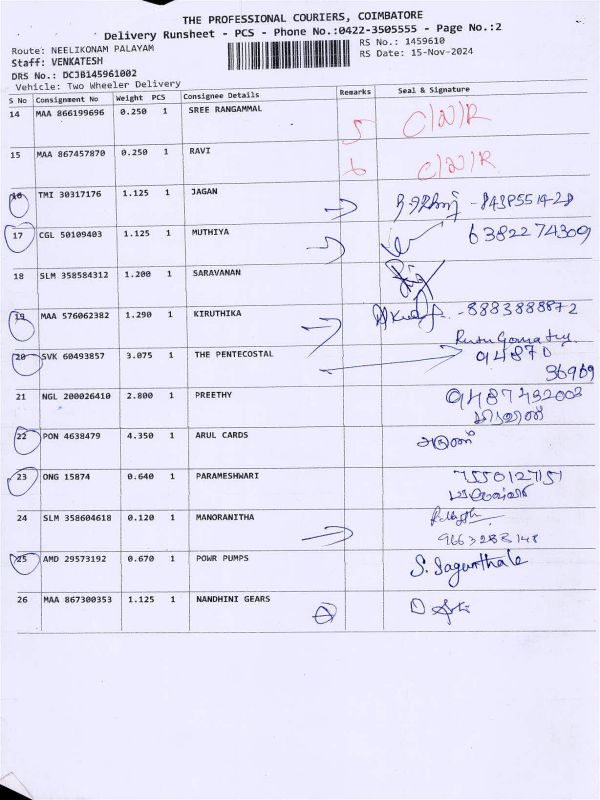 THE PROFESSIONAL COURIERS, COIMBATORE
Delivery Runsheet - PCS - Phone No.:0422-3505555 - Page No.:2
Route: NEELIKONAM PALAYAM
RS No.: 1459610
Staff: VENKATESH
RS Date: 15-Nov-2024
DRS No.: DCJB145961002
Vehicle: Two Wheeler Delivery
S No Consignment No Weight PCS Consignee Details Remarks Seal & Signature
14 MAA 866199696 0.250 1 SREE RANGAMMAL 5 C/N/R
15 MAA 867457870 0.250 1 RAVI 6 C/N/R
16 TMI 30317176 1.125 1 JAGAN
17 CGL 50109403 1.125 1 MUTHIYA 6382274309
18 SLM 358584312 1.200 1 SARAVANAN
19 MAA 576062382 1.290 1 KIRUTHIKA -8883888872
20 SVK 60493857 3.075 1 THE PENTECOSTAL 94870
36969
21 NGL 200026410 2.800 1 PREETHY 9487432003
22 PON 4638479 4.350 1 ARUL CARDS அருண்
23 ONG 15874 0.640 1 PARAMESHWARI 7550127151
24 SLM 358604618 0.120 1 MANORANITHA
25 AMD 29573192 0.670 1 POWR PUMPS S. Sagunthale
26 MAA 867300353 1.125 1 NANDHINI GEARS